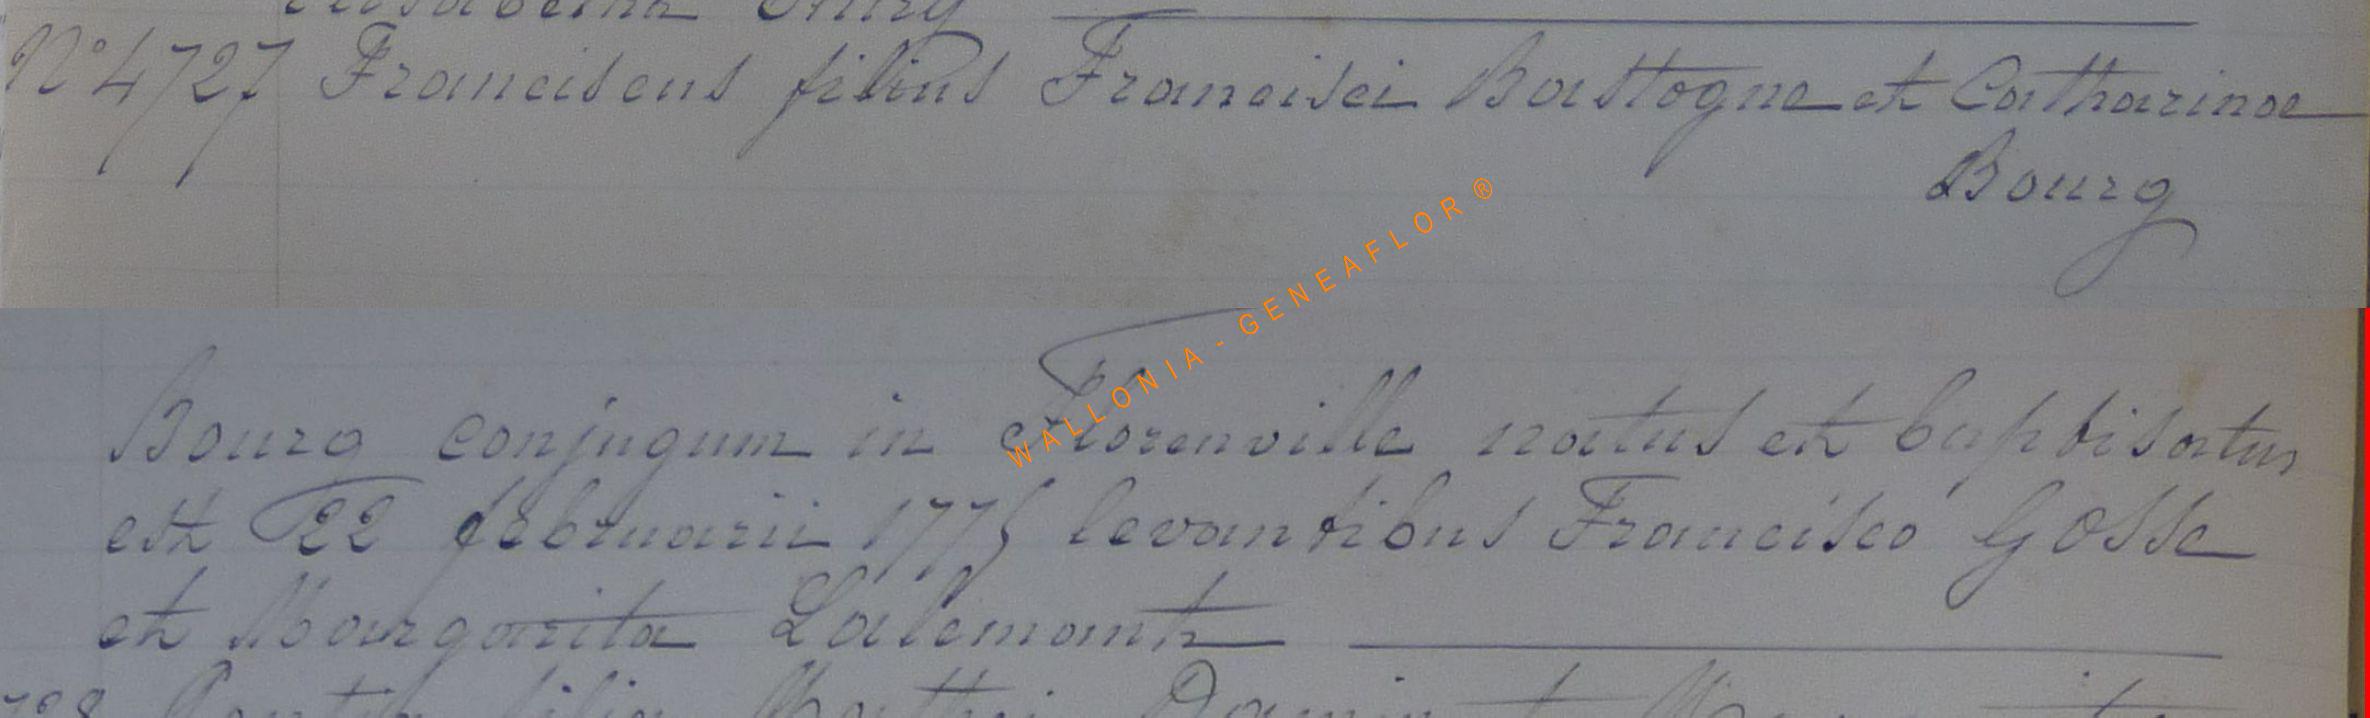 N° 4727 Franciscus filius Francisci Bastogne et Catharinae
Bourg
WALLONIA - GENEAFLOR ®
Bourg conjugum in Florenville natus et baptisatus
est 22 februarii 1775 levantibus Francisco Gosse
et Margarita Lalemant